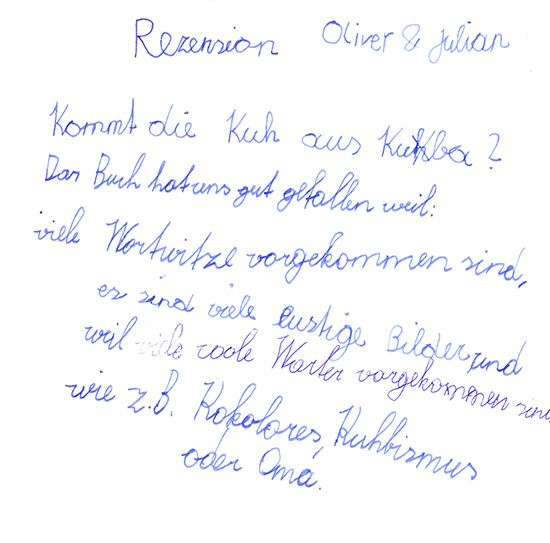 Rezension Oliver & Julian
Kommt die Kuh aus Kuhba?
Das Buch hat uns gut gefallen weil:
viele Wortwitze vorgekommen sind,
es sind viele lustige Bilder und
weil viele coole Wörter vorgekommen sind
wie z.B. Kokolores, Kuhbismus
oder Oma.